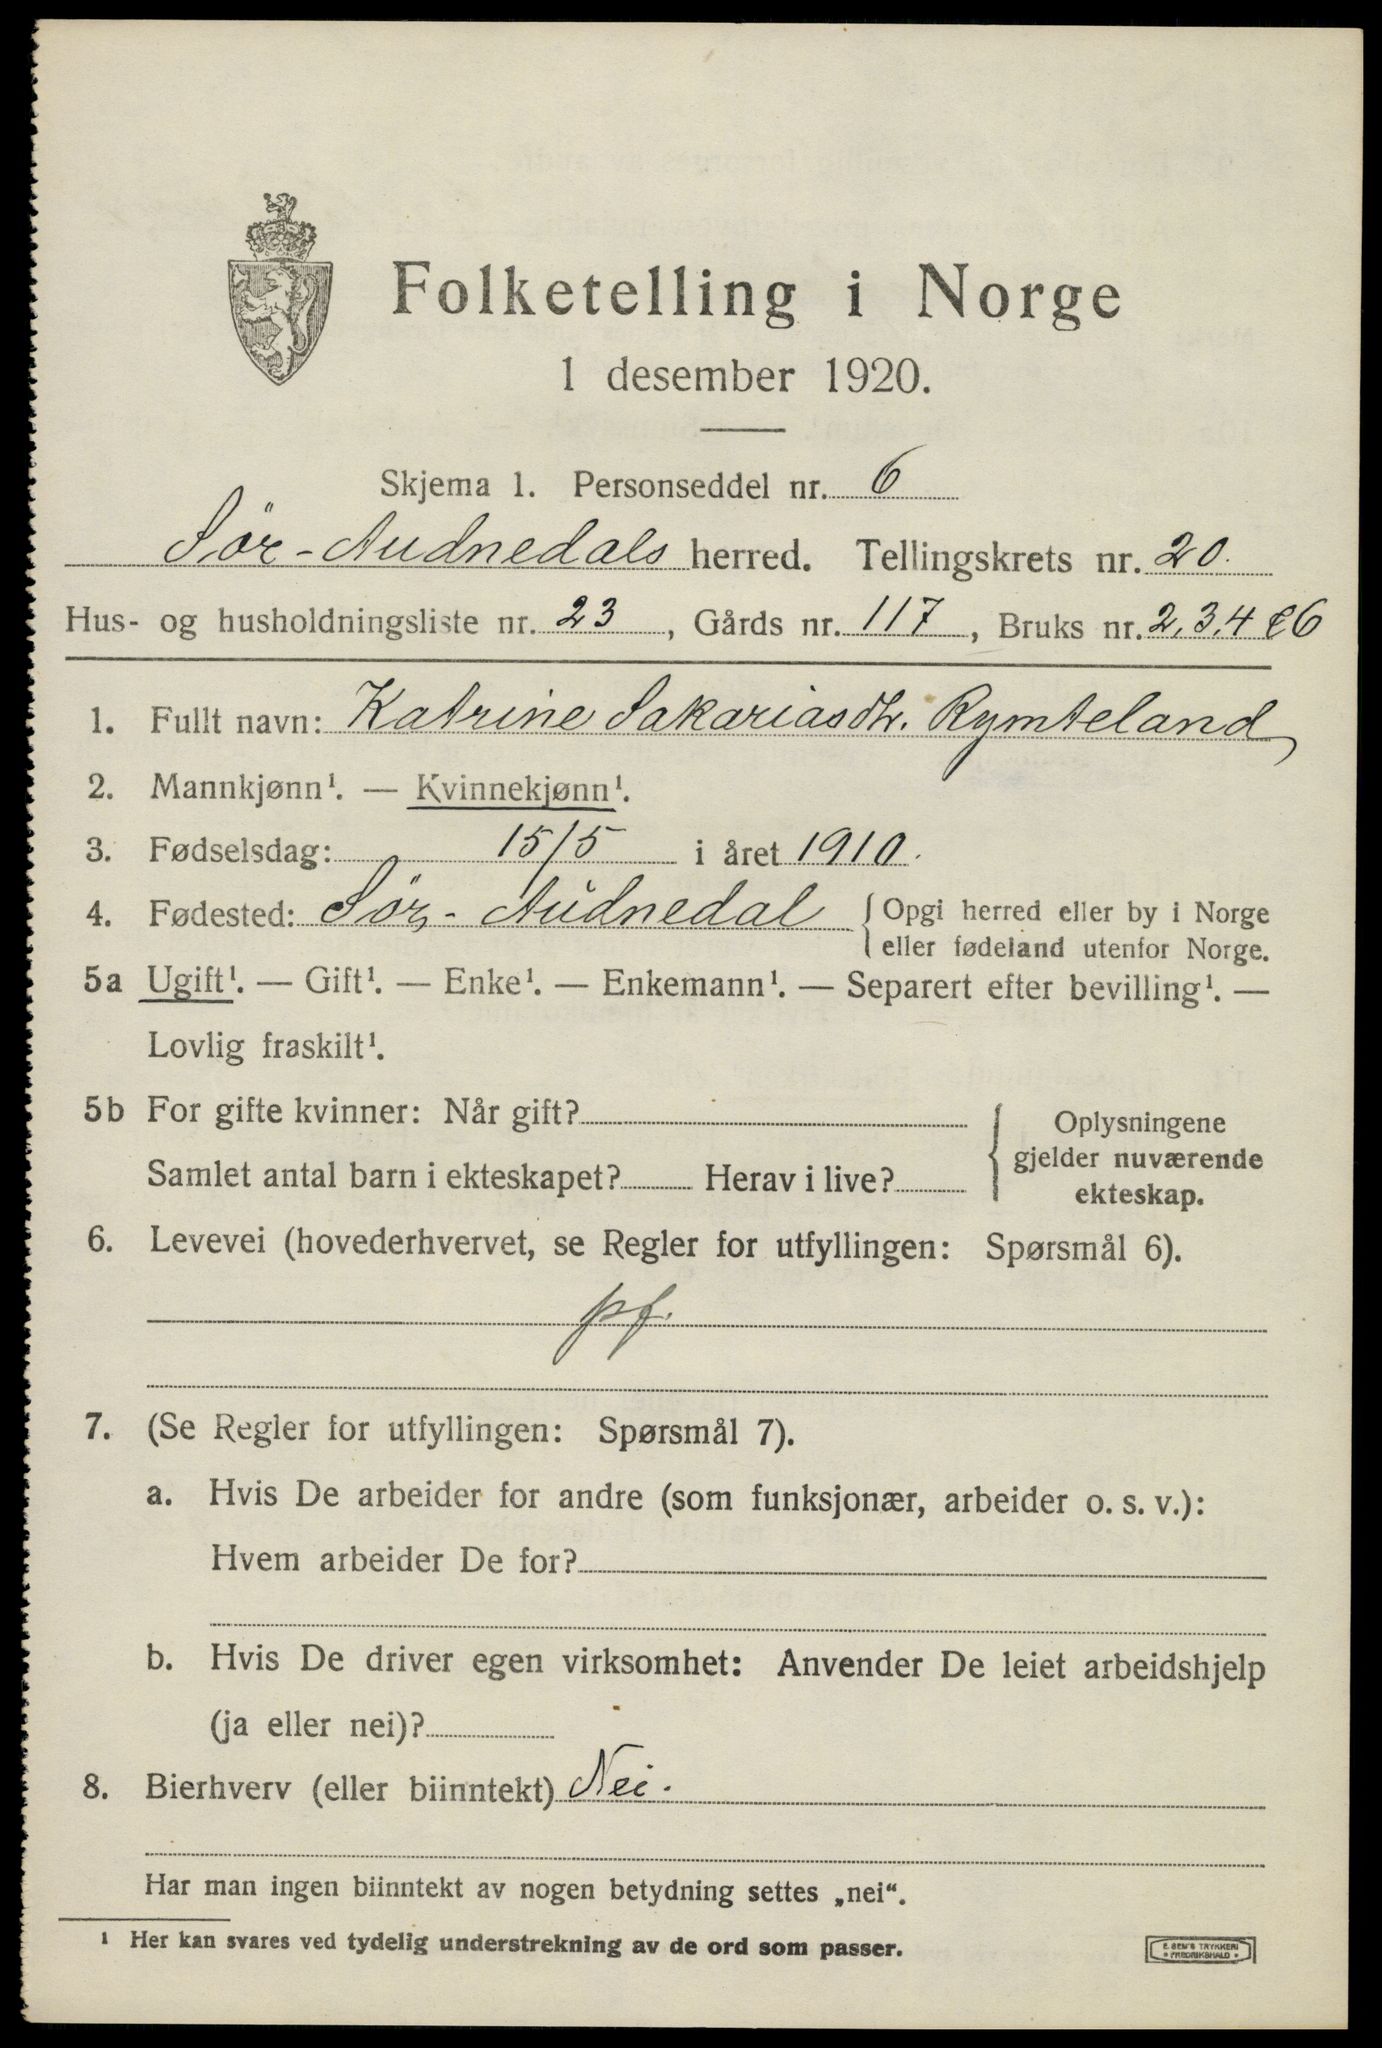 Folketelling i Norge
1 desember 1920.
Skjema 1. Personseddel nr. 6
Sör-Audnedals herred. Tellingskrets nr. 20.
Hus- og husholdningsliste nr. 23, Gårds nr. 117, Bruks nr. 2, 3, 4 & 6
1. Fullt navn: Katrine Sakariasdtr. Rymteland
2. Mannkjønn¹. — Kvinnekjønn¹.
3. Fødselsdag: 15/5 i året 1910.
4. Fødested: Sör-Audnedal { Opgi herred eller by i Norge
eller fødeland utenfor Norge.
5a Ugift¹. — Gift¹. — Enke¹. — Enkemann¹. — Separert efter bevilling¹. —
Lovlig fraskilt¹.
5b For gifte kvinner: Når gift?
Samlet antal barn i ekteskapet? Herav i live?
{ Oplysningene
gjelder nuværende
ekteskap.
6. Levevei (hovederhvervet, se Regler for utfyllingen: Spørsmål 6).
pf.
7. (Se Regler for utfyllingen: Spørsmål 7).
a. Hvis De arbeider for andre (som funksjonær, arbeider o. s. v.):
Hvem arbeider De for?
b. Hvis De driver egen virksomhet: Anvender De leiet arbeidshjelp
(ja eller nei)?
8. Bierhverv (eller biinntekt) Nei.
Har man ingen biinntekt av nogen betydning settes „nei“.
¹ Her kan svares ved tydelig understrekning av de ord som passer.
E. SEM'S TRYKKERI
* FREDRIKSHALD *